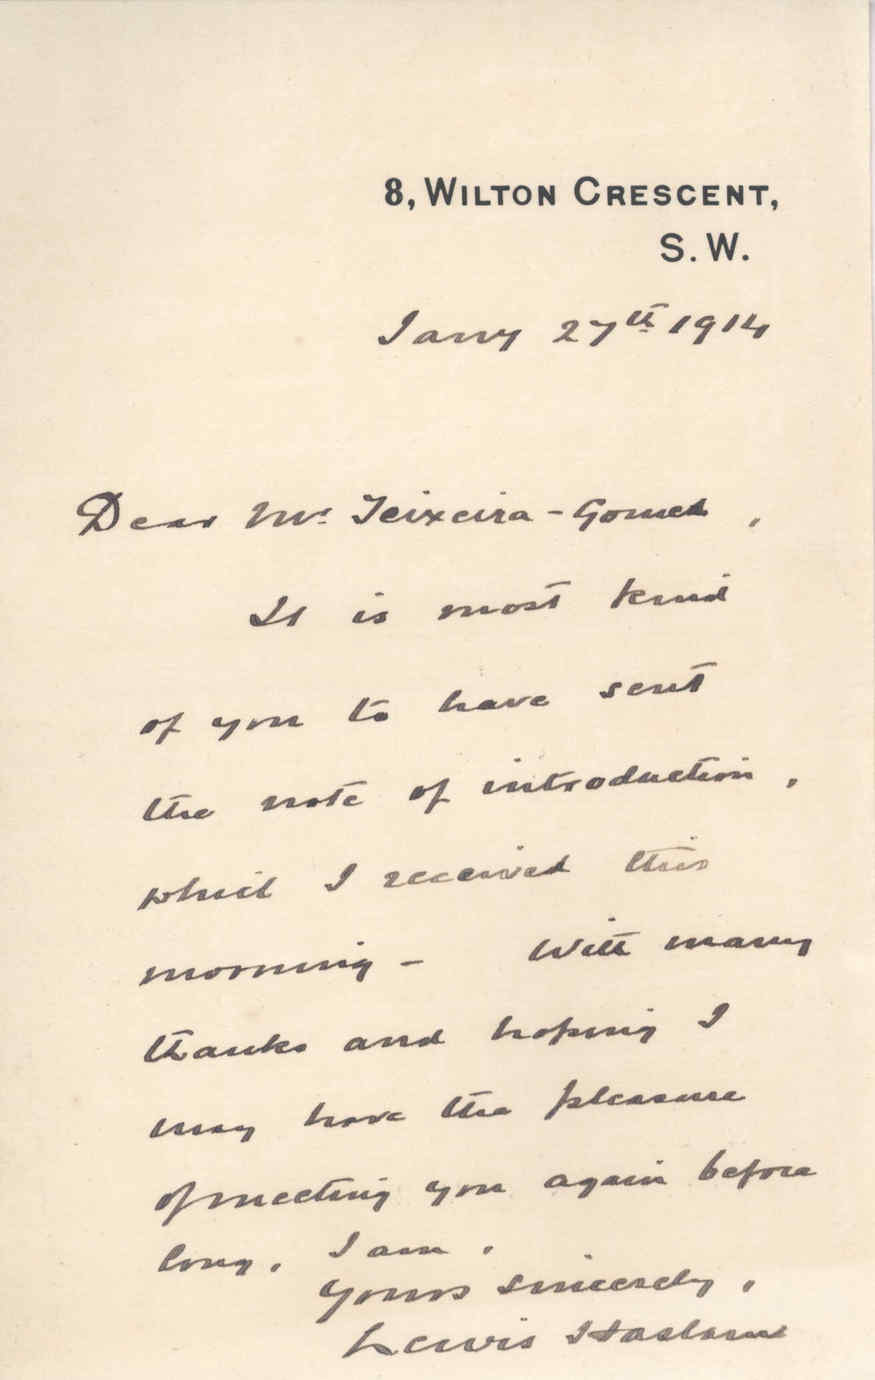 8, WILTON CRESCENT,
S.W.
Jany 27th 1914
Dear Mr. Teixeira-Gomes,
It is most kind
of you to have sent
the note of introduction,
which I received this
morning - With many
thanks and hoping I
may have the pleasure
of meeting you again before
long, I am,
Yours sincerely,
Lewis Haslam